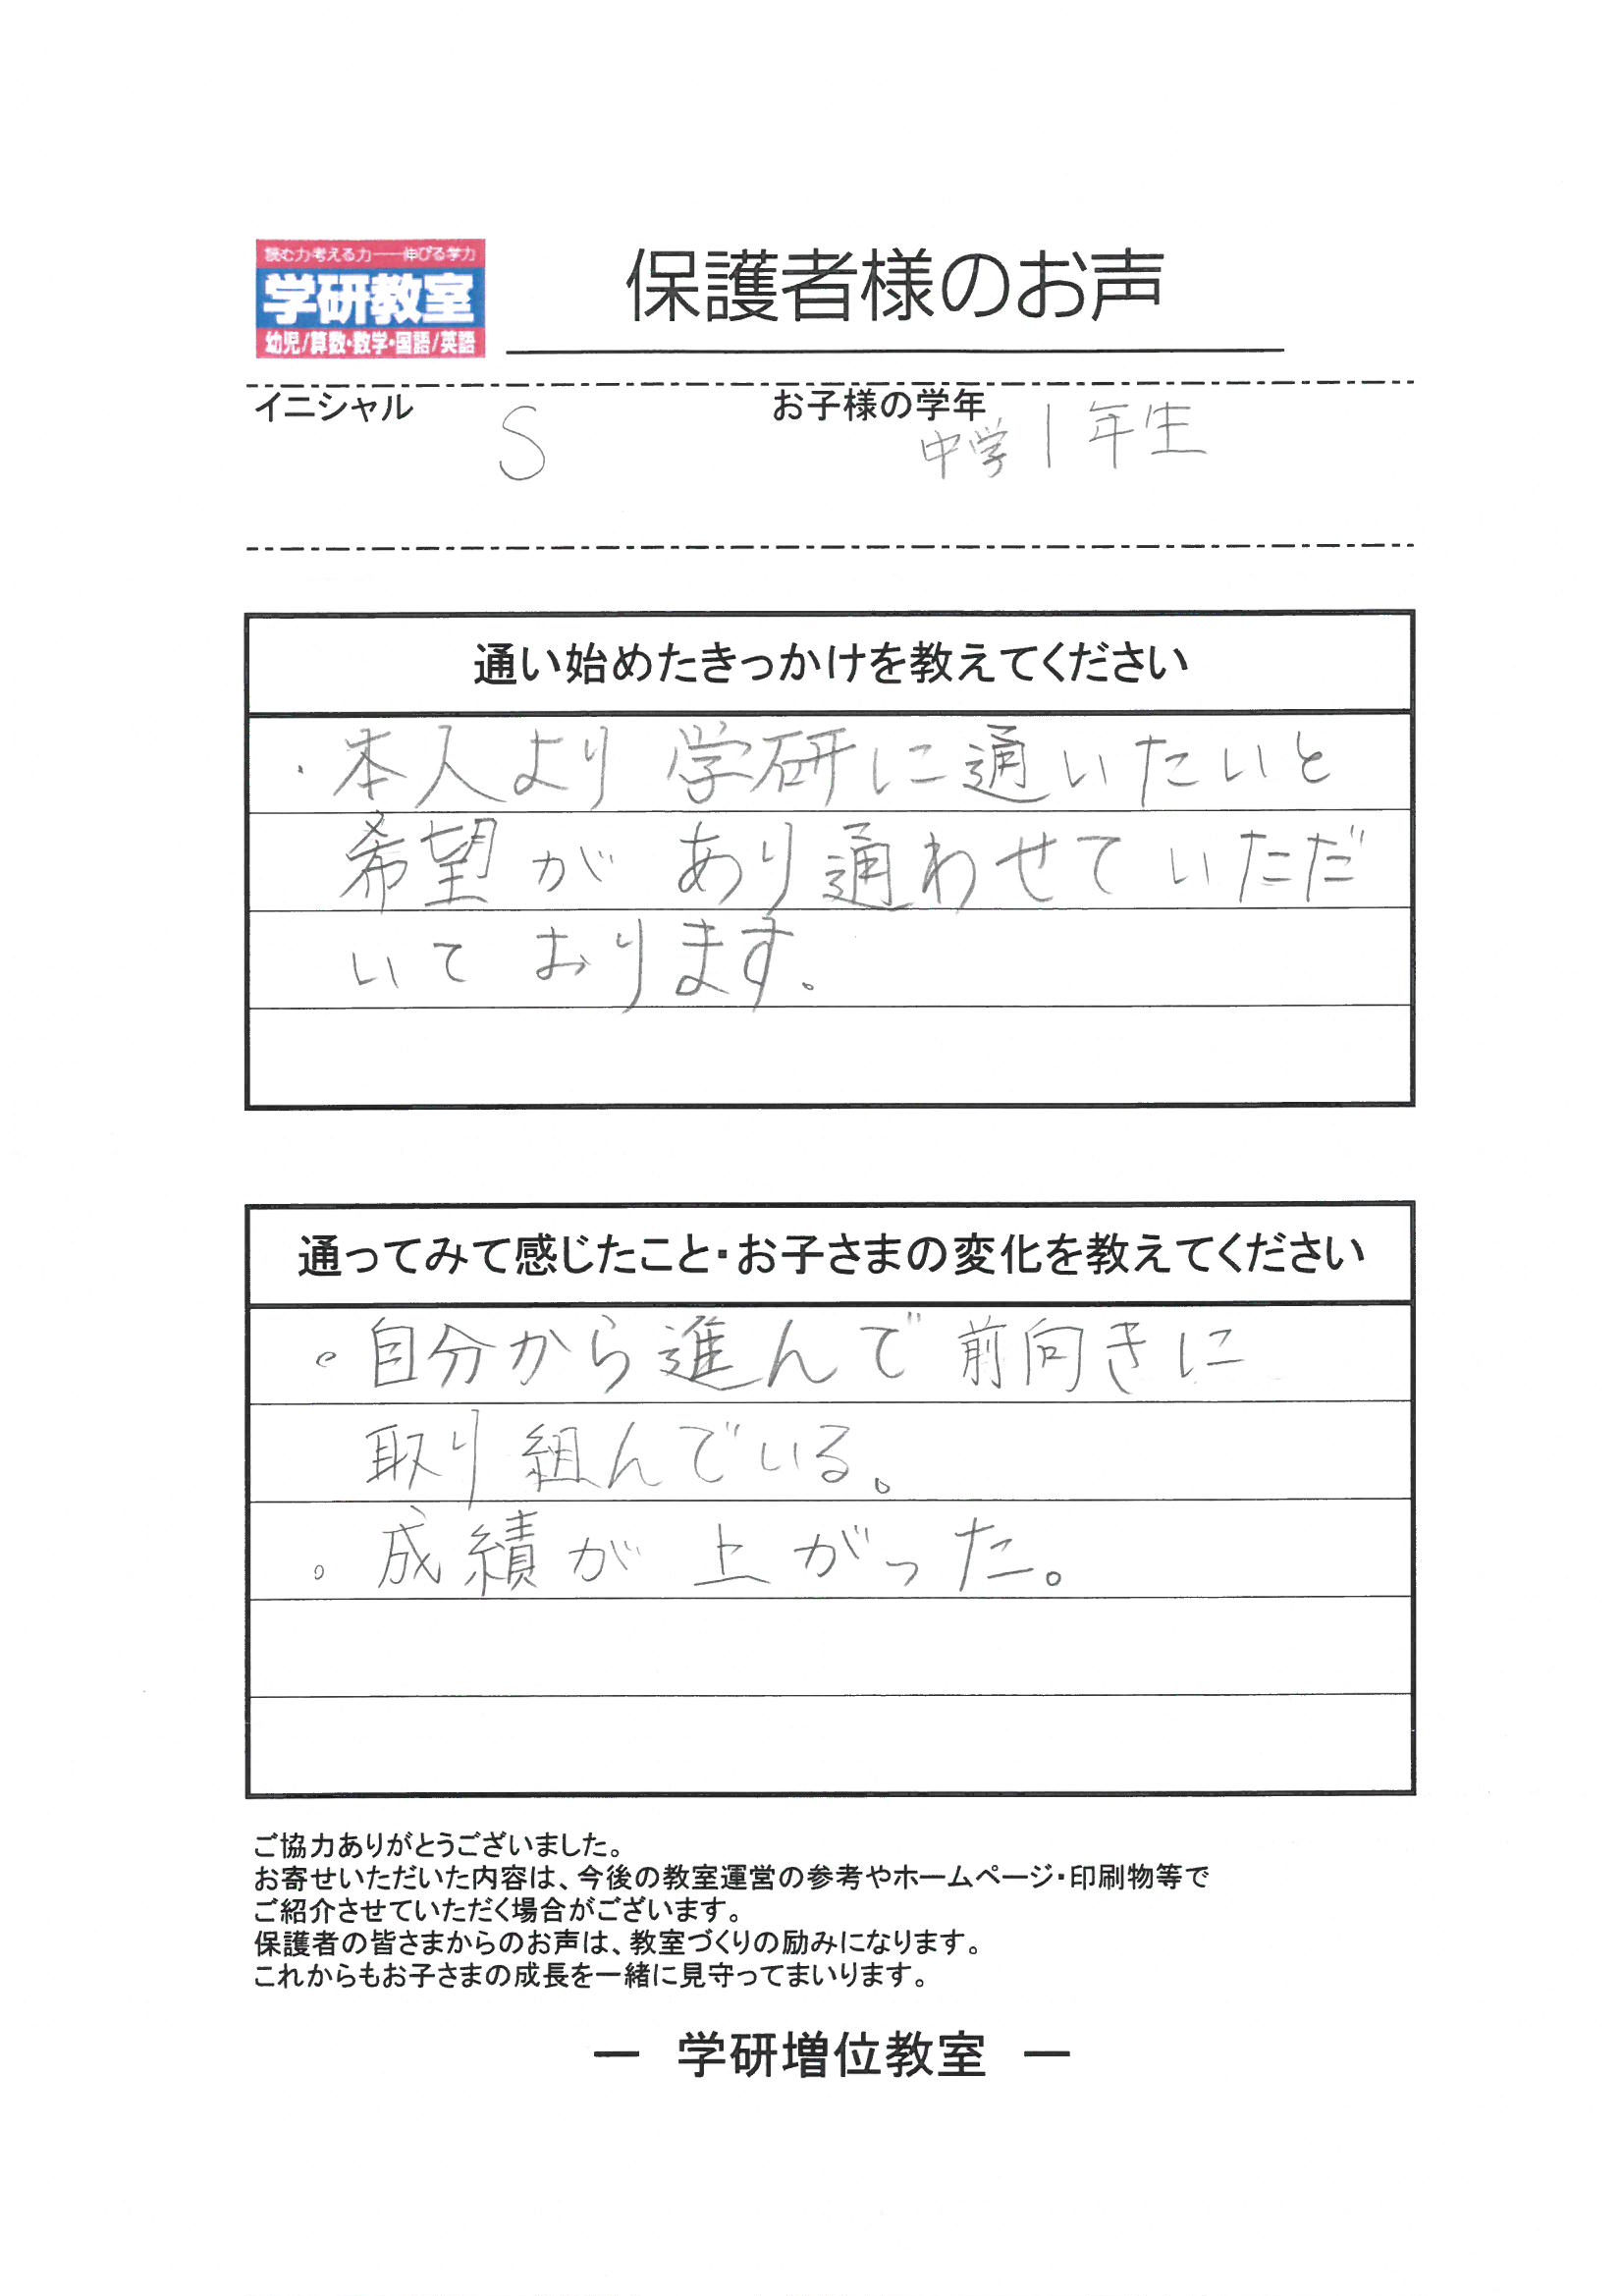 読む力考える力――伸びる学力
学研教室
幼児/算数・数学・国語/英語
保護者様のお声
イニシャル S お子様の学年 中学1年生
通い始めたきっかけを教えてください
・本人より学研に通いたいと
希望があり通わせていただ
いております。
通ってみて感じたこと・お子さまの変化を教えてください
。自分から進んで前向きに
取り組んでいる。
。成績が上がった。
ご協力ありがとうございました。
お寄せいただいた内容は、今後の教室運営の参考やホームページ・印刷物等で
ご紹介させていただく場合がございます。
保護者の皆さまからのお声は、教室づくりの励みになります。
これからもお子さまの成長を一緒に見守ってまいります。
― 学研増位教室 ―